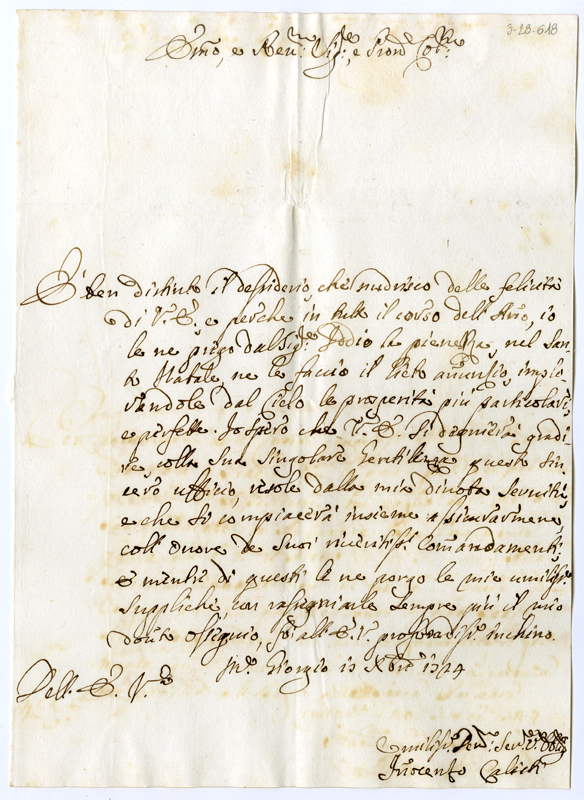 3-28-618
Illmo, e Revmo Sigre, e Pron Colmo
È ben distinto il desiderio, che nudrisco delle felicità
di V. S., e perche in tutto il corso dell'Ano, io
le ne prego dal Sigre Iddio la pienezza, nel San-
to Natale, ne le faccio il lieto anunzio, implo-
randole dal Cielo le prosperità più particolari,
e perfette. Io spero che V. S. si degnierà gradi-
re, colla sua singolare Gentilezza questo sin-
cero ufficio, resole dalla mia divota Servitù,
e che si compiacerà insieme assicurarmene,
coll'onore de suoi riveritissi Comandamenti,
e mentre di questi le ne porgo le mie umilissi
suppliche, con rasegniarle sempre più il mio
dovuto ossequio, fò all S. V. profondissi inchino.
Sn Giorgio 13 Xbre 1724
Dell. S. V.
Umilissi Devmo Servre
Inocenzo Calichi